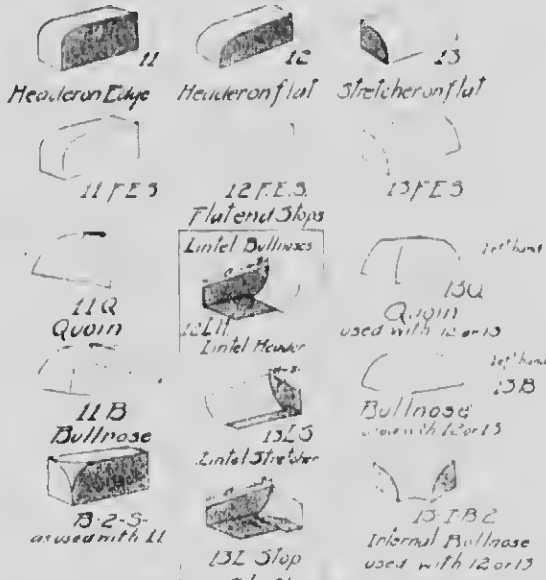 11
12
13
Header on Edge
Header on flat
Stretcher on flat
11 F.E.S
12 F.E.S.
13 F.E.S
Flat end Stops
Lintel Bullnoses
11Q
Quoin
12LH
Lintel Header
left hand
13Q
Quoin
used with 12 or 13
11B
Bullnose
13LS
Lintel Stretcher
left hand
13B
Bullnose
used with 12 or 13
B-2-S-
as used with 11
13L Stop
13-I-B-2
Internal Bullnose
used with 12 or 13